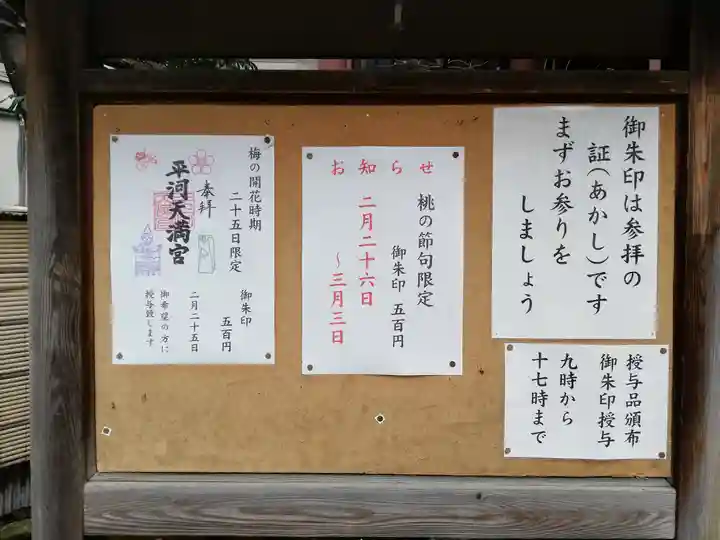 御朱印は参拝の
証(あかし)です
まずお参りを
しましょう
授与品頒布
御朱印授与
九時から
十七時まで
お知らせ
桃の節句限定
御朱印 五百円
二月二十六日
~三月三日
梅の開花時期
二十五日限定
奉拝
平河天満宮
御朱印
五百円
二月二十五日
御希望の方に
授与致します